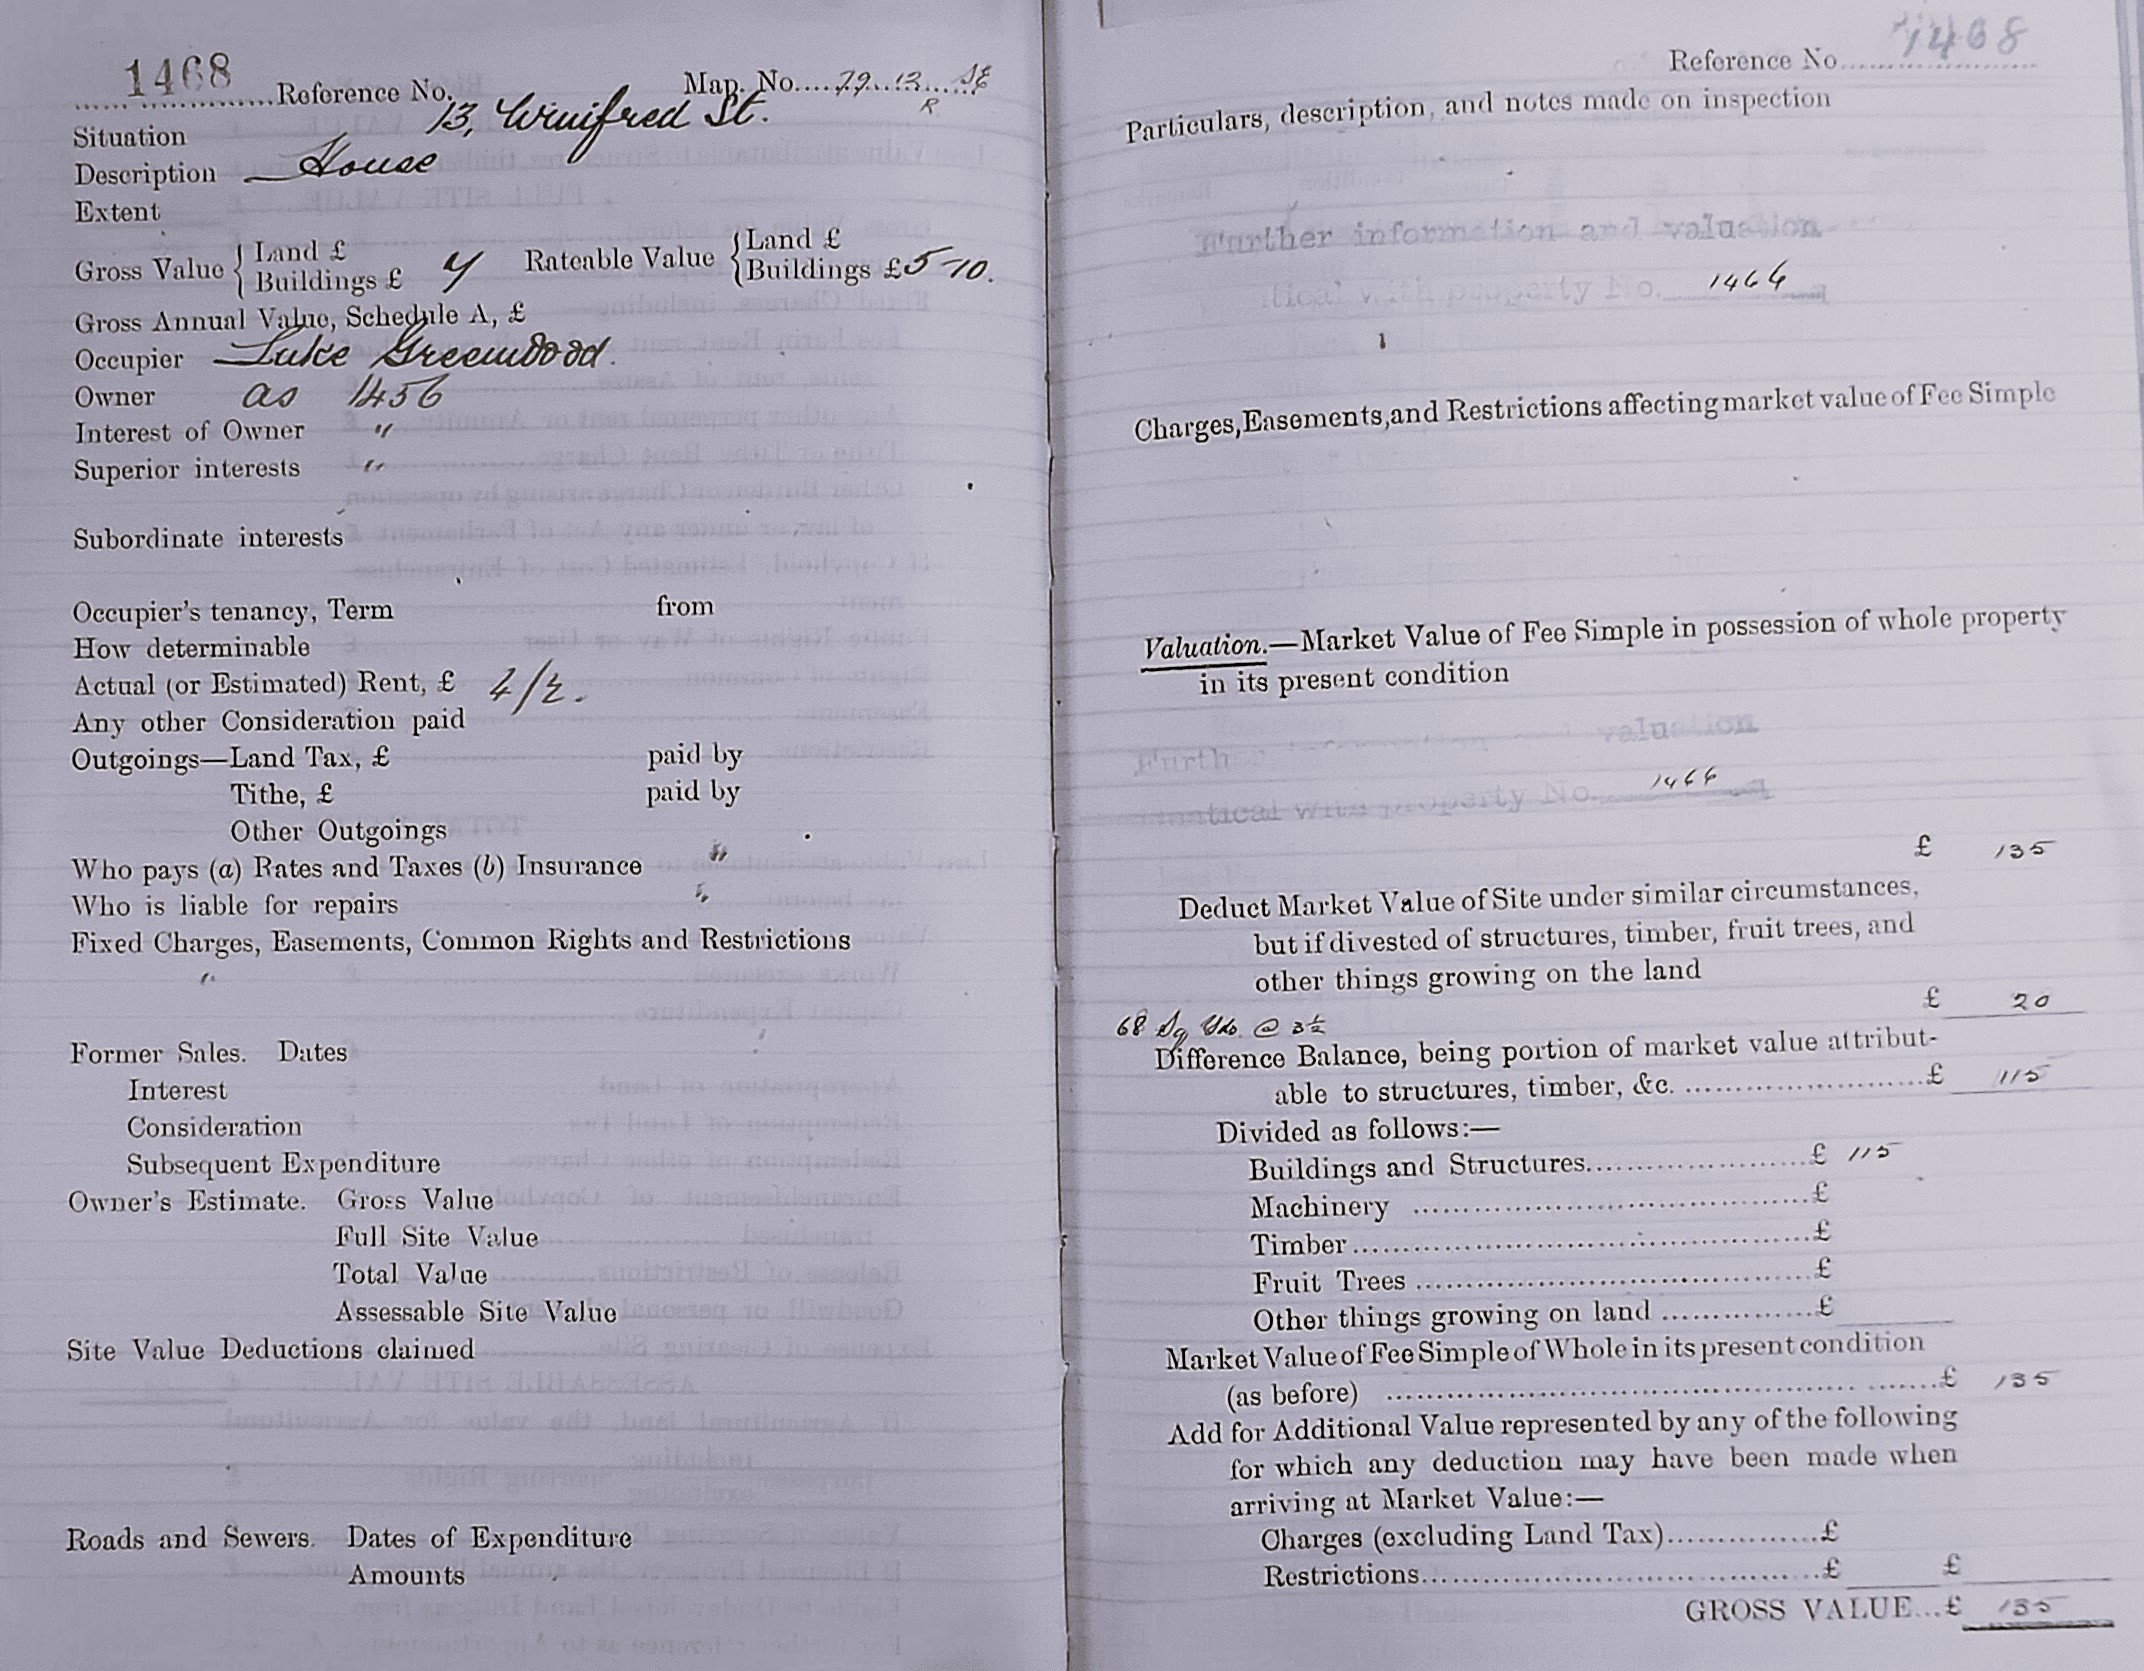 1468 Reference No. Map. No. 79 13 SE
R
Situation 13, Winifred St.
Description House
Extent
Gross Value { Land £
Buildings £ 7 Rateable Value { Land £
Buildings £ 5-10.
Gross Annual Value, Schedule A, £
Occupier Luke Greenwood.
Owner as 1456
Interest of Owner "
Superior interests "
Subordinate interests
Occupier's tenancy, Term from
How determinable
Actual (or Estimated) Rent, £ 4/2.
Any other Consideration paid
Outgoings—Land Tax, £ paid by
Tithe, £ paid by
Other Outgoings
Who pays (a) Rates and Taxes (b) Insurance "
Who is liable for repairs "
Fixed Charges, Easements, Common Rights and Restrictions
"
Former Sales. Dates
Interest
Consideration
Subsequent Expenditure
Owner's Estimate. Gross Value
Full Site Value
Total Value
Assessable Site Value
Site Value Deductions claimed
Roads and Sewers. Dates of Expenditure
Amounts
Reference No. 1468
Particulars, description, and notes made on inspection
Further information and valuation
tical with property No. 1466
Charges, Easements, and Restrictions affecting market value of Fee Simple
Valuation.—Market Value of Fee Simple in possession of whole property
in its present condition
Further information and valuation
entical with property No. 1466
£ 135
Deduct Market Value of Site under similar circumstances,
but if divested of structures, timber, fruit trees, and
other things growing on the land
£ 20
68 Sq Yds. @ 3½
Difference Balance, being portion of market value attribut-
able to structures, timber, &c. £ 115
Divided as follows:—
Buildings and Structures £ 115
Machinery £
Timber £
Fruit Trees £
Other things growing on land £
Market Value of Fee Simple of Whole in its present condition
(as before) £ 135
Add for Additional Value represented by any of the following
for which any deduction may have been made when
arriving at Market Value:—
Charges (excluding Land Tax) £
Restrictions £ £
GROSS VALUE...£ 135